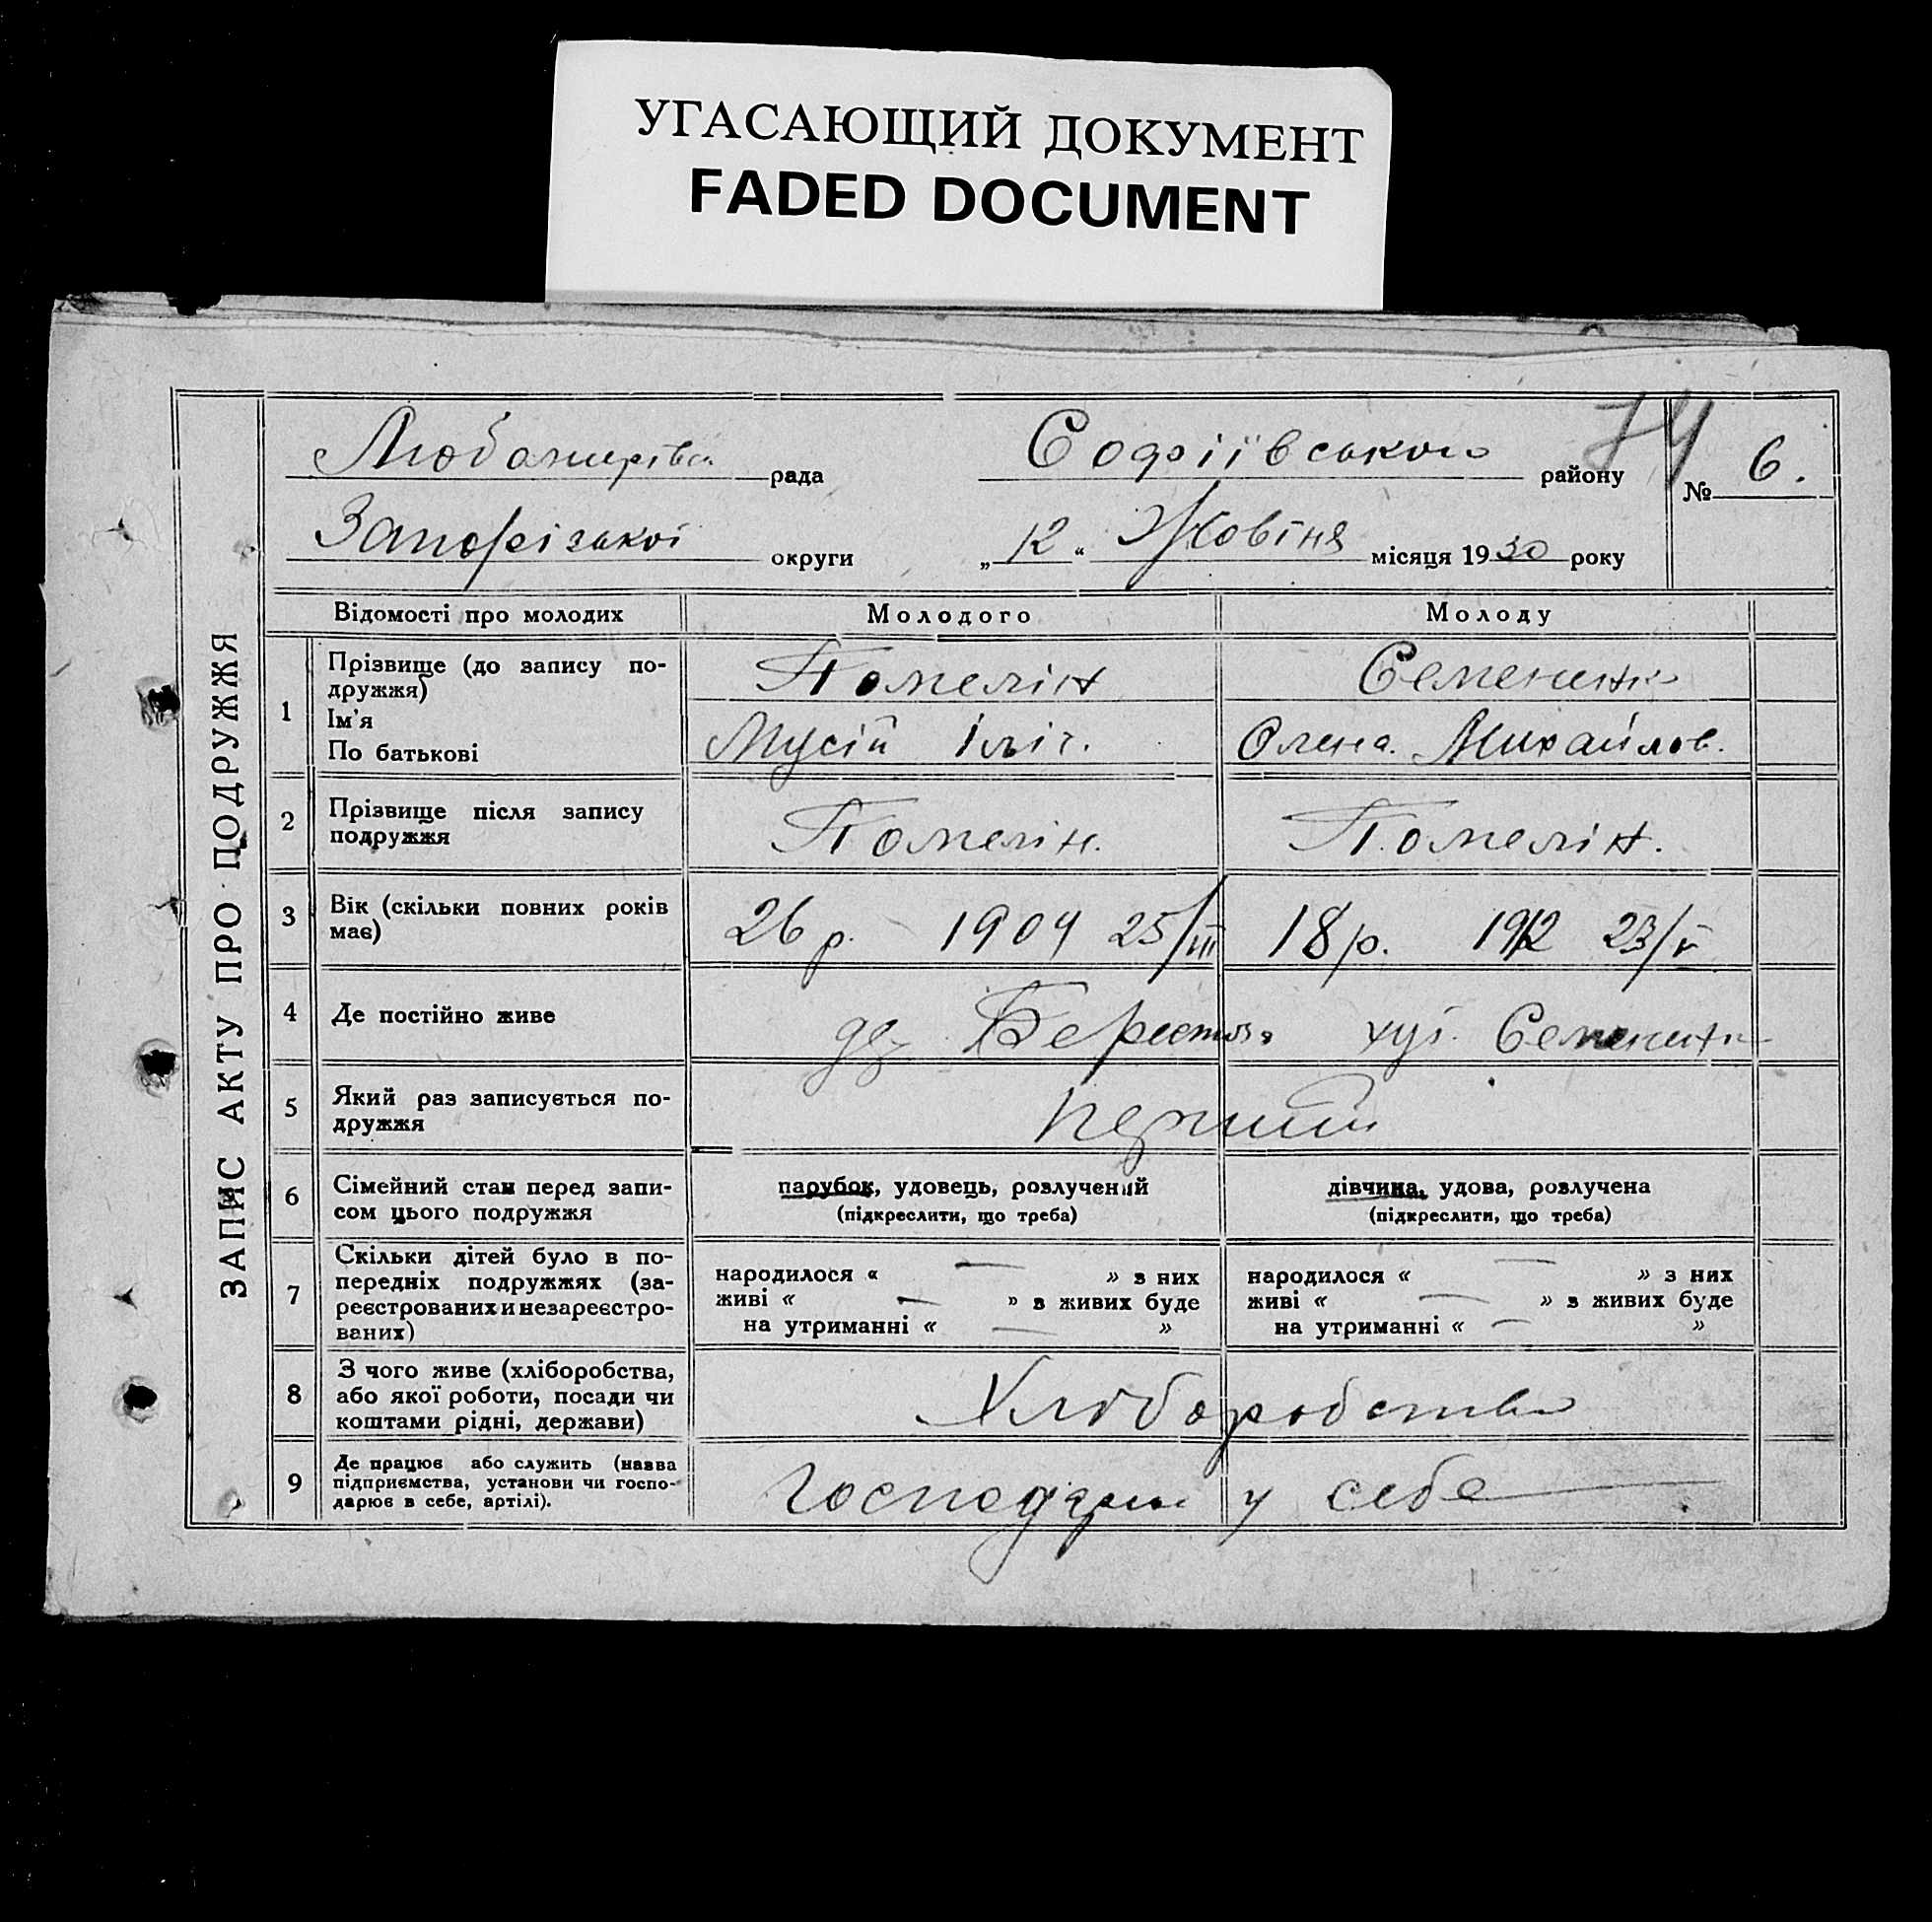 УГАСАЮЩИЙ ДОКУМЕНТ
FADED DOCUMENT
ЗАПИС АКТУ ПРО ПОДРУЖЖЯ
рада Софіївського району 74 № 6.
округи „ 12 “ місяця 1930 року
Відомості про молодих Молодого Молоду
1 Прізвище (до запису по-
дружжя)
Помелін
Ім'я
По батькові
Мусій Ілліч. Олена. Михайлов.
2 Прізвище після запису
подружжя
Помелін. Помелін.
3 Вік (скільки повних років
має)
26 р. 1904 25/III 18 р. 1912 23/V
4 Де постійно живе
хут.
5 Який раз записується по-
дружжя
перший
6 Сімейний стан перед запи-
сом цього подружжя
парубок, удовець, розлучений дівчина, удова, розлучена
(підкреслити, що треба) (підкреслити, що треба)
7 Скільки дітей було в по-
передніх подружжях (за-
реєстрованих и незареєстро-
ваних)
народилося « — » з них народилося « — » з них
живі « — » з живих буде живі « — » з живих буде
на утриманні « — » на утриманні « — »
8 З чого живе (хліборобства,
або якої роботи, посади чи
коштами рідні, держави)
Хліборобства
9 Де працює або служить (назва
підприємства, установи чи госпо-
дарює в себе, артілі).
у себе